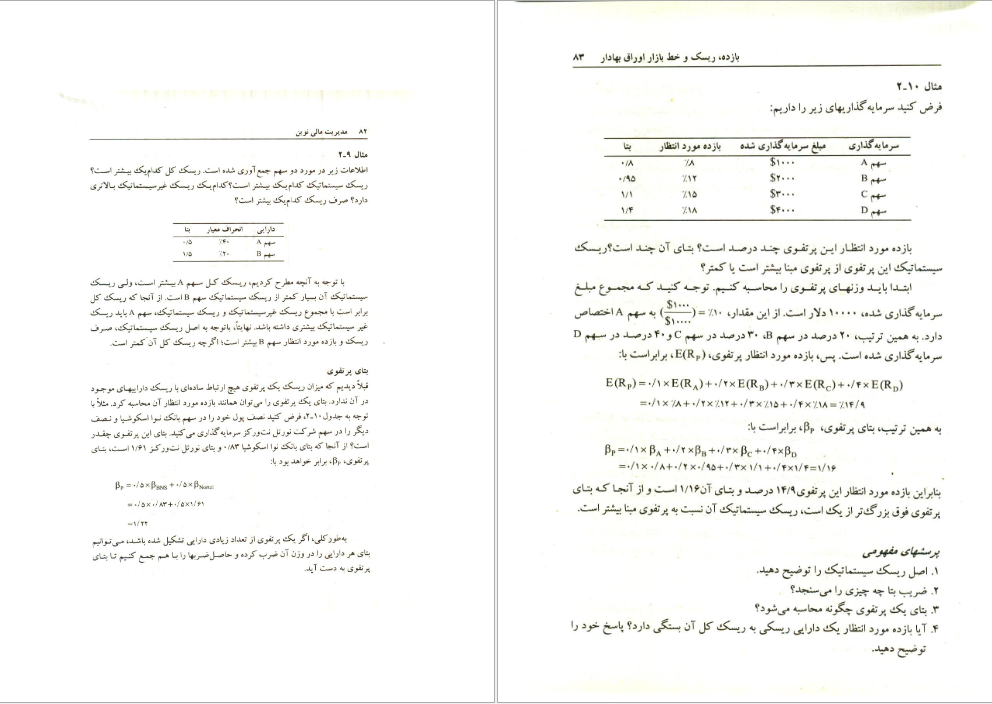 ۸۲ مدیریت مالی نوین
مثال ۹ـ۲
اطلاعات زیر در مورد دو سهم جمع‌آوری شده است. ریسک کل کدام‌یک بیشتر است؟
ریسک سیستماتیک کدام‌یک بیشتر است؟کدام‌یک ریسک غیرسیستماتیک بالاتری
دارد؟ صرف ریسک کدام‌یک بیشتر است؟
دارایی انحراف معیار بتا
سهم A ٪۴۰ ۰/۵
سهم B ٪۲۰ ۱/۵
با توجه به آنچه مطرح کردیم، ریسک کل سهم A بیشتر است، ولی ریسک
سیستماتیک آن بسیار کمتر از ریسک سیستماتیک سهم B است. از آنجا که ریسک کل
برابر است با مجموع ریسک غیرسیستماتیک و ریسک سیستماتیک، سهم A باید ریسک
غیر سیستماتیک بیشتری داشته باشد. نهایتاً، باتوجه به اصل ریسک سیستماتیک، صرف
ریسک و بازده مورد انتظار سهم B بیشتر است؛ اگرچه ریسک کل آن کمتر است.
بتای پرتفوی
قبلاً دیدیم که میزان ریسک یک پرتفوی هیچ ارتباط ساده‌ای با ریسک داراییهای موجود
در آن ندارد. بتای یک پرتفوی را می‌توان همانند بازده مورد انتظار آن محاسبه کرد. مثلاً با
توجه به جدول۱۰ـ۲، فرض کنید نصف پول خود را در سهم بانک نوا اسکوشیا و نصف
دیگر را در سهم شرکت نورتل نت‌ورکز سرمایه‌گذاری می‌کنید. بتای این پرتفوی چقدر
است؟ از آنجا که بتای بانک نوا اسکوشیا ۰/۸۳ و بتای نورتل نت‌ورکز ۱/۶۱ است، بتای
پرتفوی، βP، برابر خواهد بود با:
βP = ۰/۵×βBNS + ۰/۵×βNortel
= ۰/۵×۰/۸۳+۰/۵×۱/۶۱
=۱/۲۲
به‌طورکلی، اگر یک پرتفوی از تعداد زیادی دارایی تشکیل شده باشد، می‌توانیم
بتای هر دارایی را در وزن آن ضرب کرده و حاصل‌ضربها را با هم جمع کنیم تا بتای
پرتفوی به دست آید.
بازده، ریسک و خط بازار اوراق بهادار ۸۳
مثال ۱۰ـ۲
فرض کنید سرمایه‌گذاریهای زیر را داریم:
سرمایه‌گذاری مبلغ سرمایه‌گذاری شده بازده مورد انتظار بتا
سهم A $۱۰۰۰ ٪۸ ۰/۸
سهم B $۲۰۰۰ ٪۱۲ ۰/۹۵
سهم C $۳۰۰۰ ٪۱۵ ۱/۱
سهم D $۴۰۰۰ ٪۱۸ ۱/۴
بازده مورد انتظار این پرتفوی چند درصد است؟ بتای آن چند است؟ریسک
سیستماتیک این پرتفوی از پرتفوی مبنا بیشتر است یا کمتر؟
ابتدا باید وزنهای پرتفوی را محاسبه کنیم. توجه کنید که مجموع مبلغ
سرمایه‌گذاری شده، ۱۰۰۰۰ دلار است. از این مقدار، ۱۰٪ = ($۱۰۰۰/$۱۰۰۰۰) به سهم A اختصاص
دارد. به همین ترتیب، ۲۰ درصد در سهم B، ۳۰ درصد در سهم C و ۴۰ درصد در سهم D
سرمایه‌گذاری شده است. پس، بازده مورد انتظار پرتفوی، E(RP)، برابراست با:
E(RP) = ۰/۱×E(RA)+۰/۲×E(RB)+۰/۳×E(RC)+۰/۴×E(RD)
=۰/۱×٪۸+۰/۲×٪۱۲+۰/۳×٪۱۵+۰/۴×٪۱۸=٪۱۴/۹
به همین ترتیب، بتای پرتفوی، βP، برابراست با:
βP =۰/۱×βA+۰/۲×βB+۰/۳×βC+۰/۴×βD
=۰/۱×۰/۸+۰/۲×۰/۹۵+۰/۳×۱/۱+۰/۴×۱/۴=۱/۱۶
بنابراین بازده مورد انتظار این پرتفوی۱۴/۹ درصد و بتای آن۱/۱۶ است و از آنجا که بتای
پرتفوی فوق بزرگ‌تر از یک است، ریسک سیستماتیک آن نسبت به پرتفوی مبنا بیشتر است.
پرسشهای مفهومی
۱. اصل ریسک سیستماتیک را توضیح دهید.
۲. ضریب بتا چه چیزی را می‌سنجد؟
۳. بتای یک پرتفوی چگونه محاسبه می‌شود؟
۴. آیا بازده مورد انتظار یک دارایی ریسکی به ریسک کل آن بستگی دارد؟ پاسخ خود را
توضیح دهید.